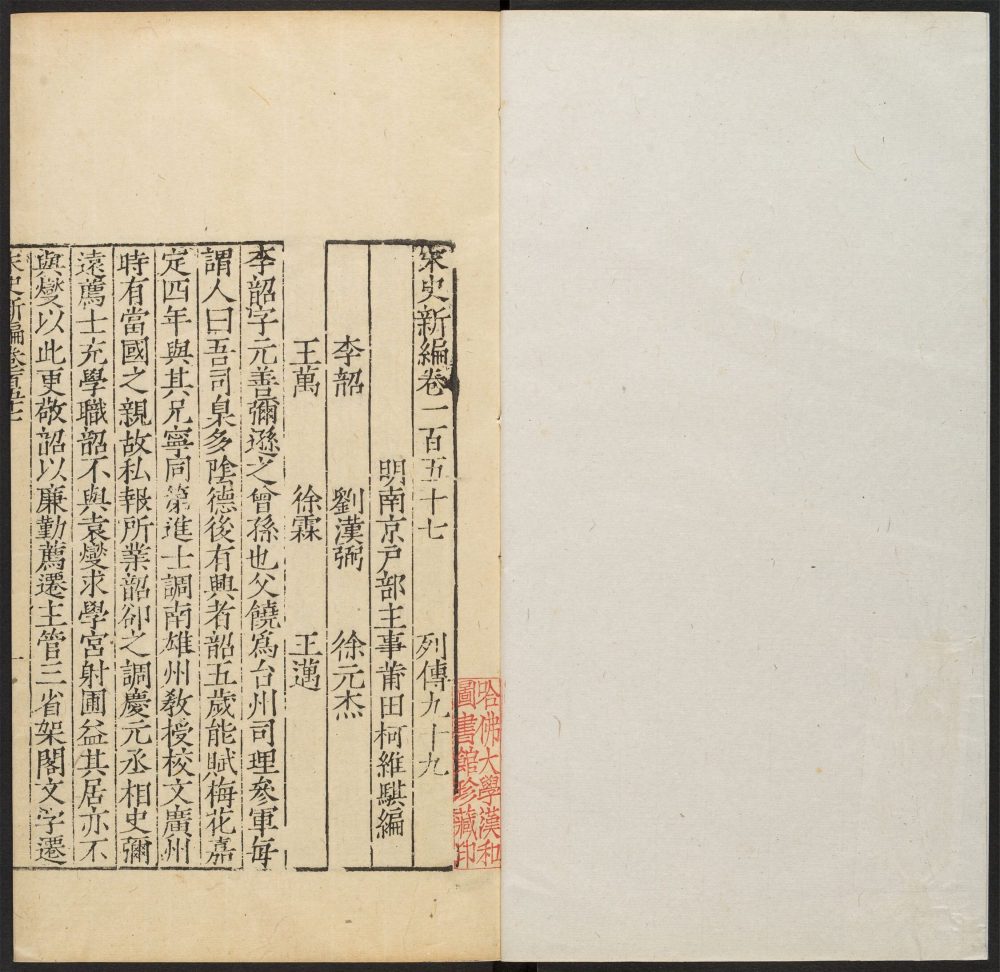 宋史新編卷一百五十七 列傳九十九
明南京戸部主事莆田柯維騏編
李韶 劉漢弼 徐元杰
王萬 徐霖 王邁
李韶字元善彌遜之曾孫也父饒爲台州司理參軍每
謂人曰吾司臬多陰德後有興者韶五歲能賦梅花嘉
定四年與其兄寧同第進士調南雄州敎授校文廣州
時有當國之親故私報所業韶卻之調慶元丞相史彌
遠薦士充學職韶不與袁燮求學宮射圃益其居亦不
與燮以此更敬韶以廉勤薦遷主管三省架閣文字遷
宋史新編卷一百五十七 一
哈佛大學漢和
圖書館珍藏印